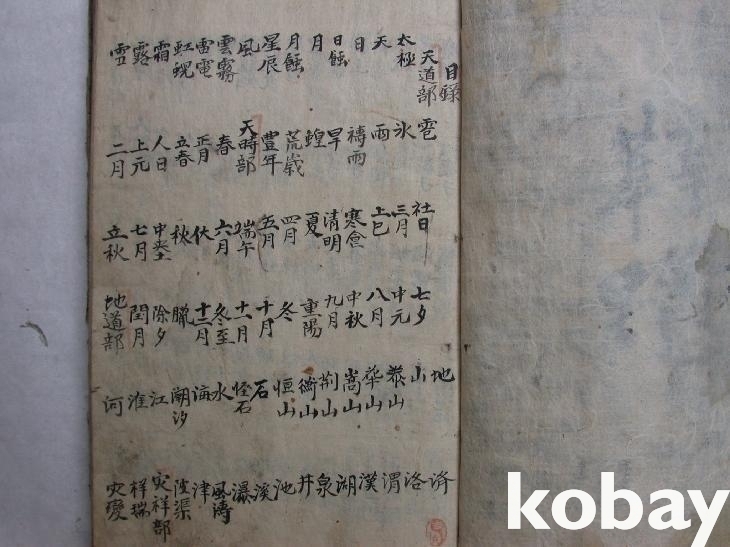 目錄
天道部
太極 天 日 日蝕 月 月蝕 星辰 風 雲霧 雷電 虹蜺 霜 露 雪
雹 氷 雨 禱雨 旱 蝗 荒歲 豊年 天時部 春 正月 立春 人日 上元 二月
社日 三月 上巳 寒食 清明 夏 四月 五月 端午 六月 伏 秋 中央土 七月 立秋
七夕 中元 八月 中秋 九月 重陽 冬 十月 十一月 冬至 十二月 臘 除夕 閏月 地道部
地 山 泰山 華山 嵩山 荊山 衡山 恒山 石 怪石 水 海 潮汐 江 淮 河
济 洛 渭 漢 湖 泉 井 池 溪 瀑 風濤 津 陂渠 灾祥部 祥瑞 灾變
kobay